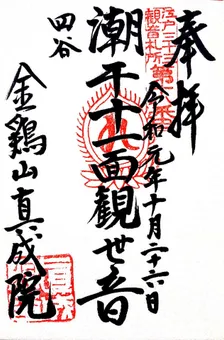 奉拝
江戸三十三
観音札所第
令和元年十月二十六日
潮干十一面観世音
四谷
金鶏山真成院